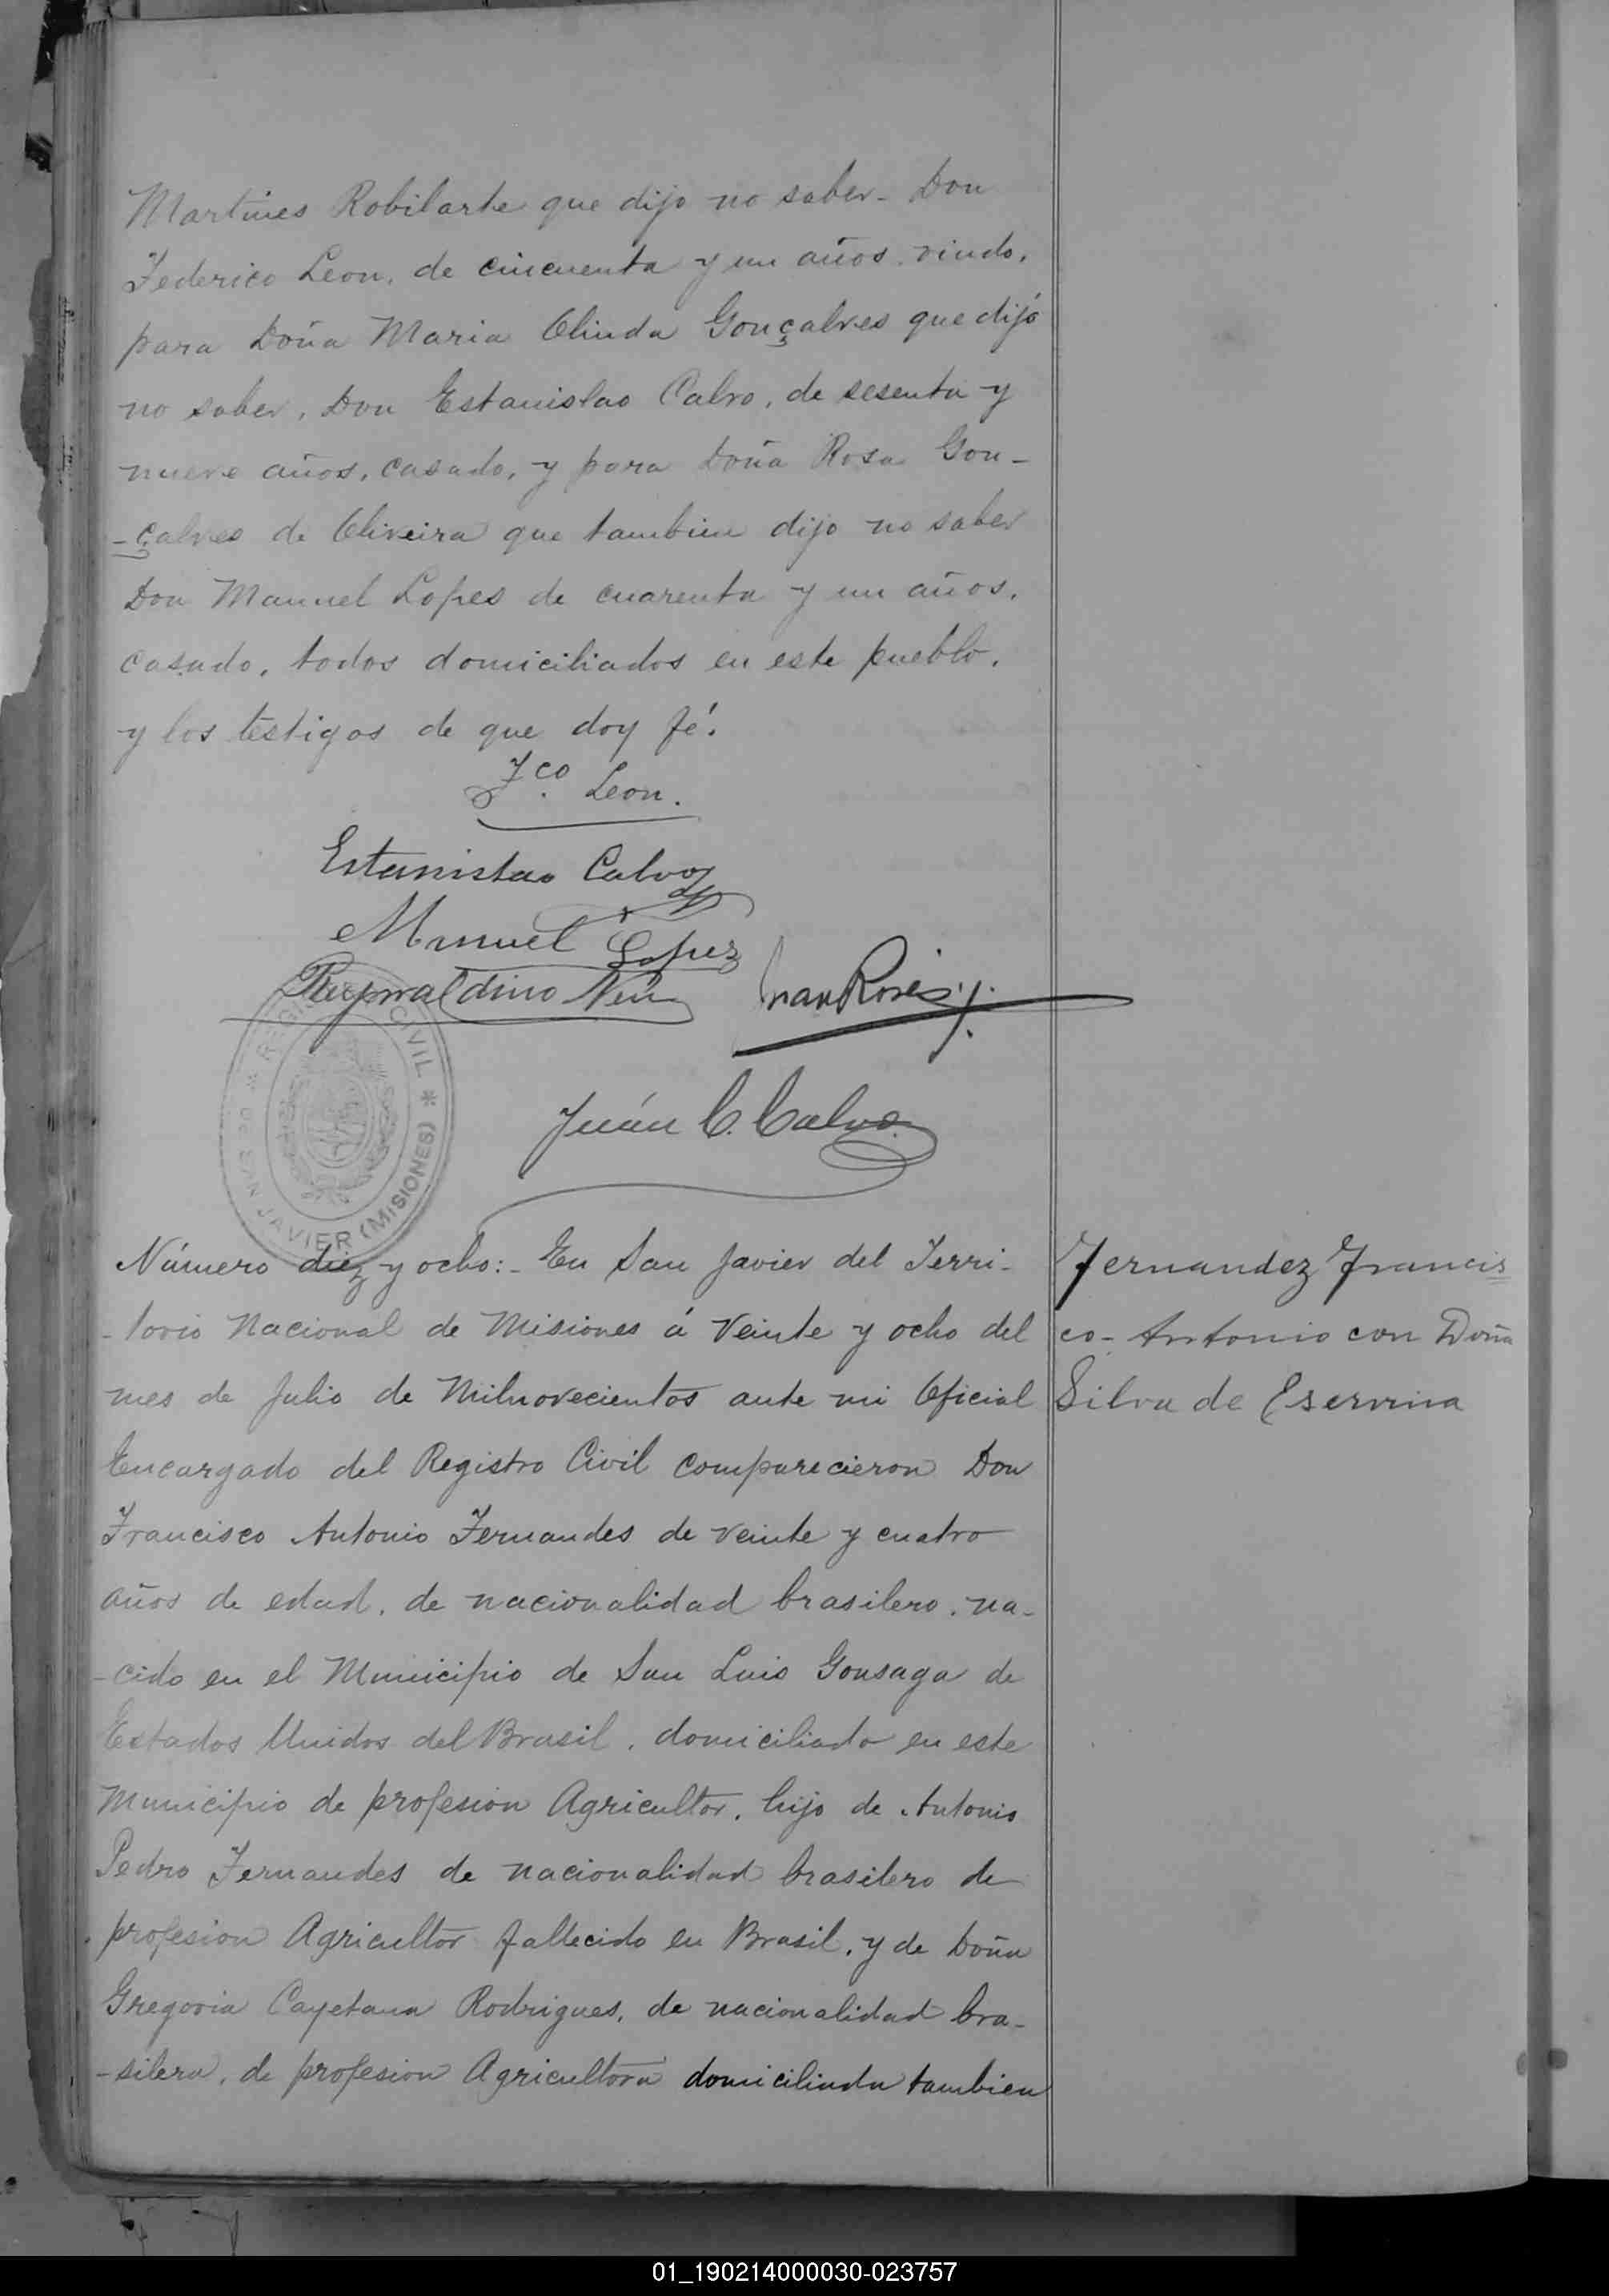 Martines Robilarte que dijo no saber - Don
Federico Leon, de cincuenta y un años, viudo,
para Doña Maria Olinda Gonçalves que dijó
no saber, Don Estanislao Calvo, de sesenta y
nueve años, casado, y para Doña Rosa Gon-
-çalves de Oliveira que tambien dijo no saber
Don Manuel Lopes de cuarenta y un años,
casado, todos domiciliados en este pueblo,
y los testigos de que doy fé.
Fco. Leon.
Estanislao Calvo
Manuel Lopez
Juan
REGISTRO CIVIL * DE SAN JAVIER (MISIONES) *
Juán C. Calvo
Número diez y ocho:- En San Javier del Terri-
-torio Nacional de Misiones á veinte y ocho del
mes de Julio de Milnovecientos ante mi Oficial
Encargado del Registro Civil comparecieron Don
Francisco Antonio Fernandes de veinte y cuatro
años de edad, de nacionalidad brasilero, na-
-cido en el Municipio de San Luis Gonsaga de
Estados Unidos del Brasil, domiciliado en este
Municipio de profesion Agricultor, hijo de Antonio
Pedro Fernandes de nacionalidad brasilero de
profesion Agricultor fallecido en Brasil, y de Doña
Gregoria Cayetana Rodrigues, de nacionalidad bra-
-silera, de profesion Agricultora domiciliada tambien
Fernandez Francis
co- Antonio con Doña
Silva de
01_190214000030-023757